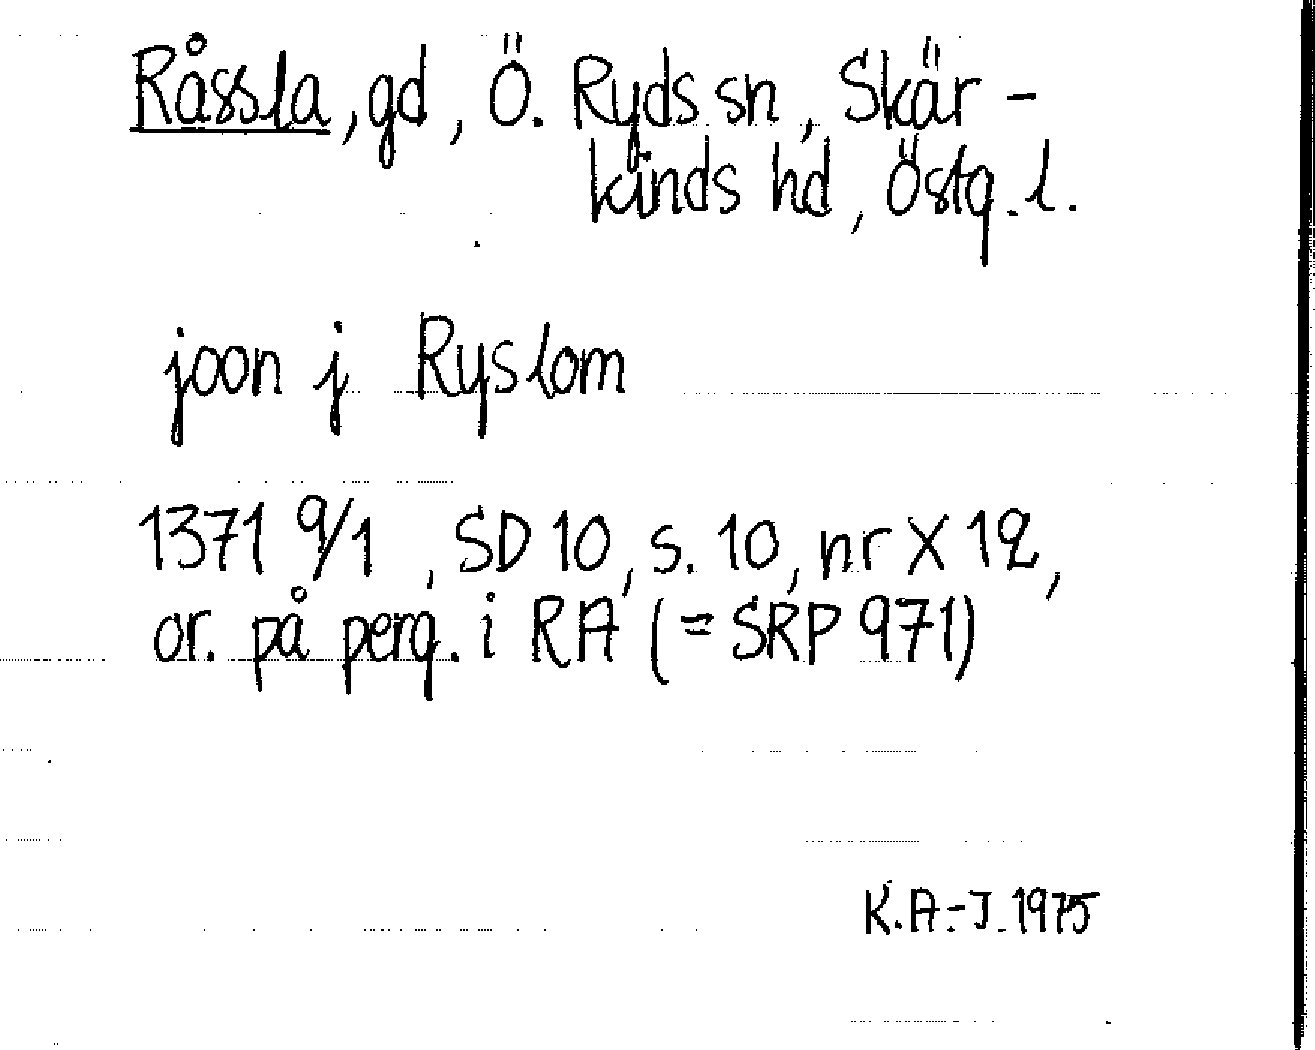 Råssla, gd, Ö. Ryds sn, Skär-
kinds hd, Östg. l.
joon j Ryslom
1371 9/1, SD 10, s. 10, nr X 12,
or. på perg. i RA (= SRP 971)
K.A.-J. 1975